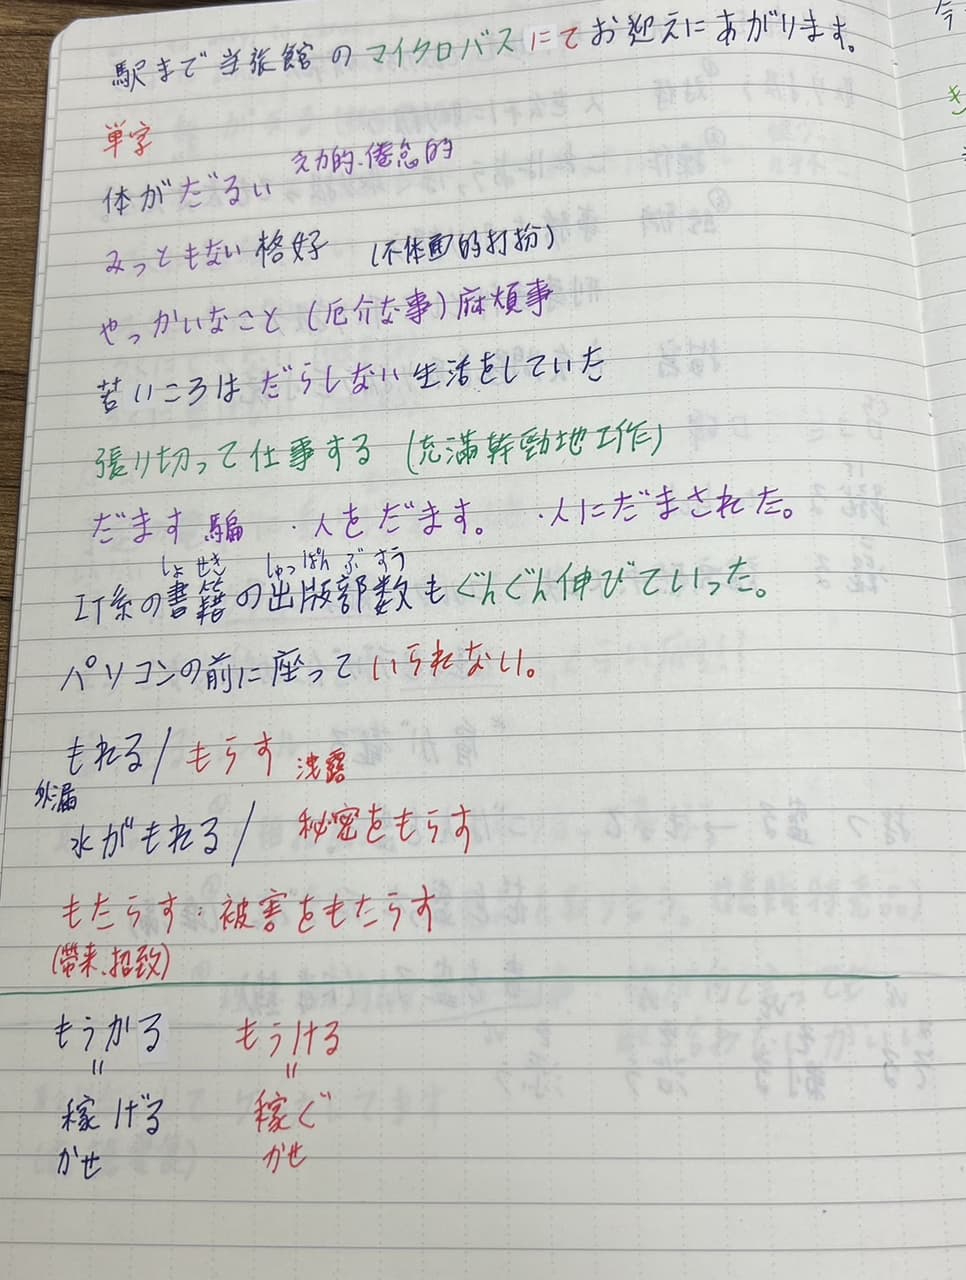 駅まで当張館のマイクロバスにてお迎えにあがります。
単字
体がだるい 無力的、倦怠的
みっともない格好 (不体面的打扮)
やっかいなこと (厄介な事) 麻煩事
若いころはだらしない生活をしていた
張り切って仕事する (充滿幹勁地工作)
だます 騙 ・人をだます。 ・人にだまされた。
しょ せき しゅっぱん ぶ すう
IT系の書籍の出版部数もぐんぐん伸びていった。
パソコンの前に座っていられない。
もれる/もらす 洩露
外漏
水がもれる/ 秘密をもらす
もたらす:被害をもたらす
(帶来、招致)
もうかる もうける
= =
稼げる 稼ぐ
かせ かせ